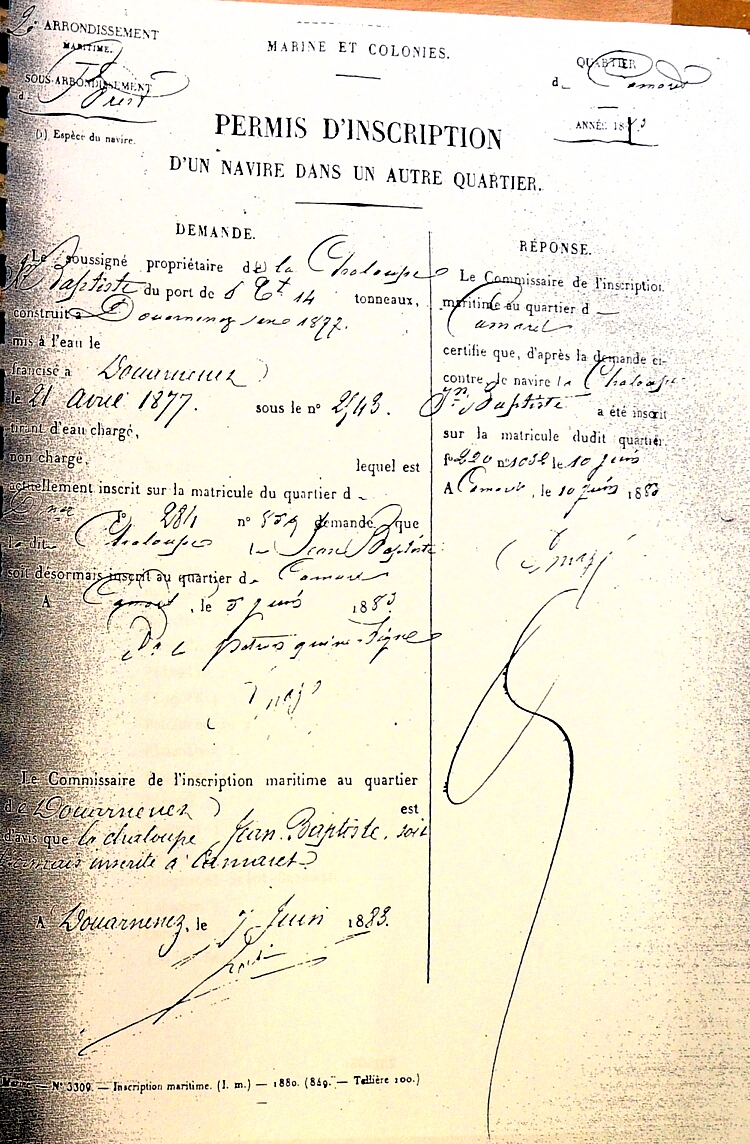 2e ARRONDISSEMENT
MARITIME.
SOUS-ARRONDISSEMENT
d Brest
(1) Espèce du navire.
MARINE ET COLONIES.
QUARTIER
d_ Camaret
ANNÉE 1883
PERMIS D'INSCRIPTION
D'UN NAVIRE DANS UN AUTRE QUARTIER.
DEMANDE.
Le soussigné propriétaire de la Chaloupe
Jn Baptiste du port de 8 Tx 14 tonneaux,
construit à Douarnenez en 1877.
mis à l'eau le
francisé à Douarnenez
le 21 avril 1877. sous le n° 2543.
tirant d'eau chargé,
non chargé, lequel est
actuellement inscrit sur la matricule du quartier d
Dnez fo 284 n° 859 demande que
la dite Chaloupe le Jean Baptiste
soit désormais inscrit au quartier de Camaret
A Camaret, le 5 juin 1883.
patron
Le Commissaire de l'inscription maritime au quartier
de Douarnenez est
d'avis que la chaloupe Jean-Baptiste, soit
inscrite à Camaret
A Douarnenez, le 7 Juin 1883.
RÉPONSE.
Le Commissaire de l'inscription
maritime au quartier d
Camaret
certifie que, d'après la demande ci-
contre, le navire la Chaloupe
Jn Baptiste a été inscrit
sur la matricule dudit quartier.
fo 220 n° 1032 le 10 juin
A Camaret, le 10 juin 1883
Marine. — N° 3309. — Inscription maritime. (I. m.) — 1880. (849. — Tellière 100.)